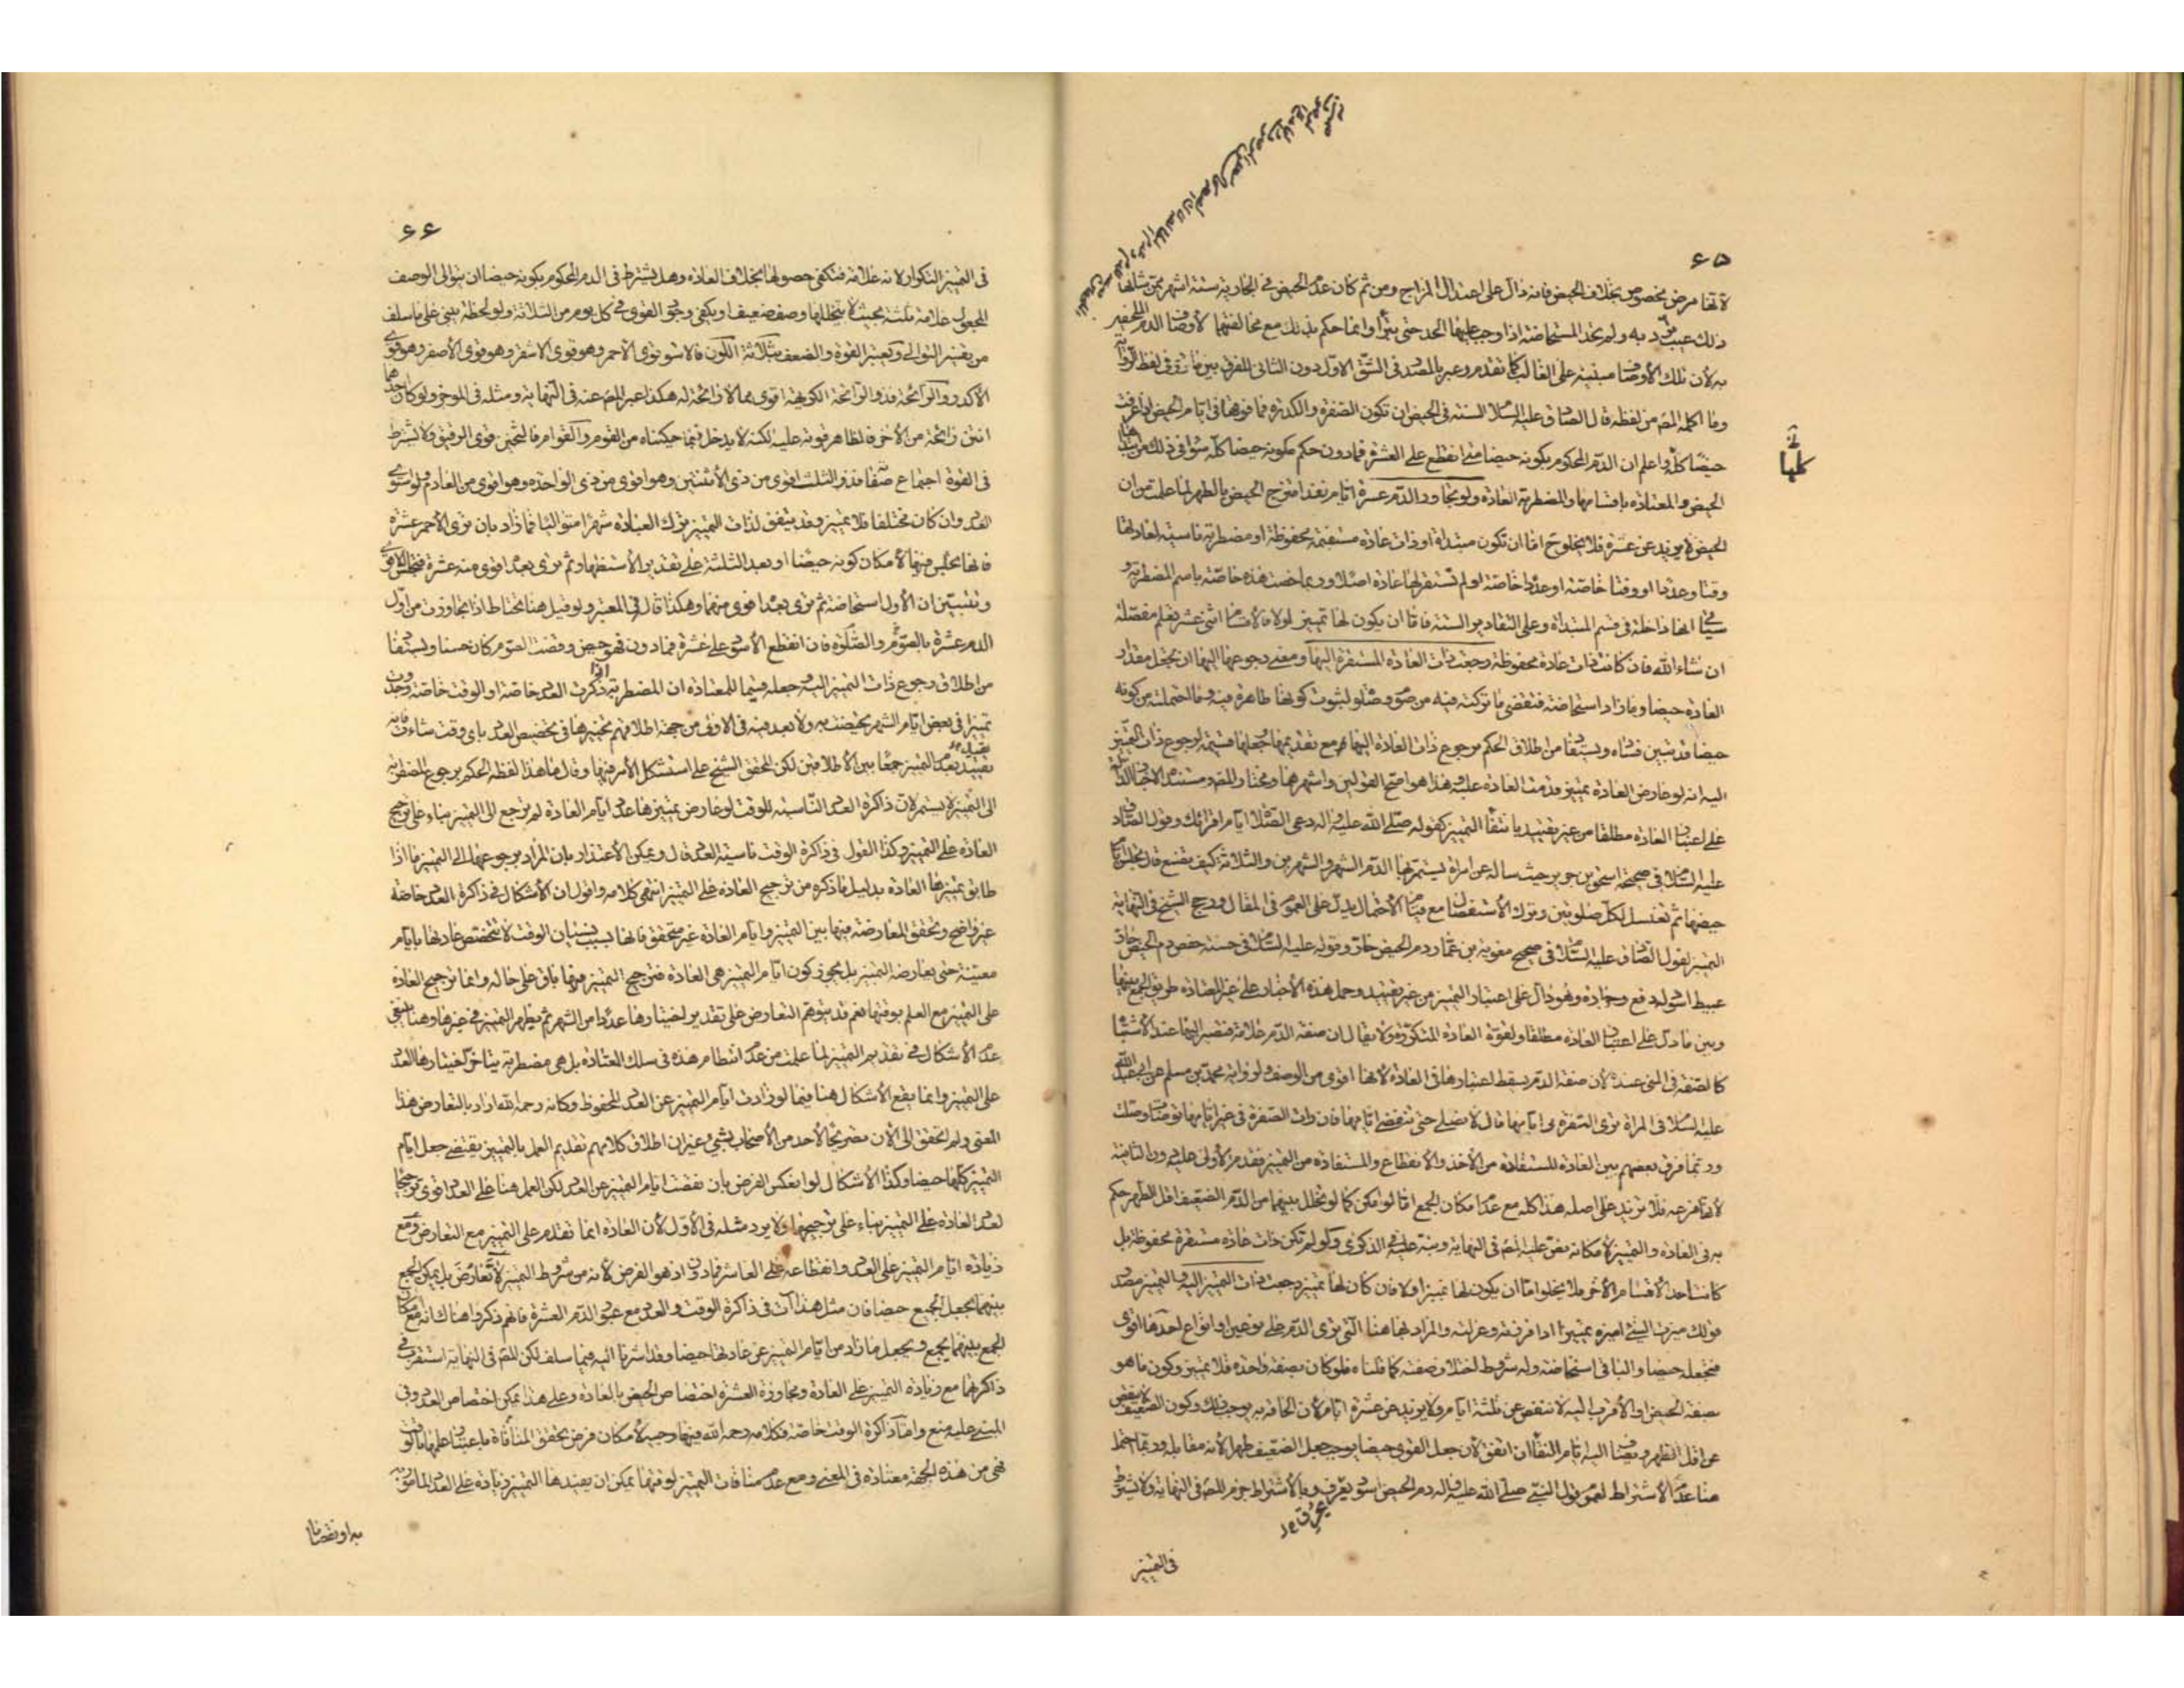 ۶۵
لأنها مرض مخصوص بخلاف الحيض فانه دال على اعتدال المزاج ومن ثم كان عدم الحيض في الجارية ستة اشهر ممن شانها
ذلك عيب ترد به ولم تحد المستحاضة اذا وجب عليها الحد حتى تبرأ وانما حكم بذلك مع مخالفتهما لأوصاف الدم
به لأن تلك الأوصاف مبنية على الغالب كما تقدم وعبر بالمصدر في الشق الاول دون الثاني للفرق بين ما في لفظ الرواية
وما اكمله المص من لفظه قال الصادق عليه السلام السنة في الحيض ان تكون الصفرة والكدرة فما فوقها في ايام الحيض اذا عرفت
حيضا كله واعلم ان الدم المحكوم بكونه حيضا متى انقطع على العشرة فما دون حكم بكونه حيضا كله سواء في ذلك
الحيض والمعتادة باقسامها والمضطربة العادة ولو تجاوز الدم عشرة ايام فقد امتزج الحيض بالطهر لما علمت من ان
الحيض لا يزيد عن عشرة فلا يخلو ح اما ان تكون مبتدأة او ذات عادة مستقيمة محفوظة او مضطربة ناسية لعادتها
وقتا وعددا او وقتا خاصة او عددا خاصة او لم تستقر لها عادة اصلا وربما خصت هذه خاصة باسم المضطربة و
انها داخلة في قسم المبتدأة وعلى التقادير الستة فاما ان يكون لها تمييز او لا فالأقسام اثنى عشر تعلم مفصلة
ان شاء الله فان كانت ذات عادة محفوظة رجعت ذات العادة المستقرة اليها ومعنى رجوعها اليها ان تجعل مقدار
العادة حيضا وما زاد استحاضة فتقضى ما تركت فيه من صوم وصلوة لثبوت كونها طاهرة فيه وما احتملته من كونه
حيضا قد تبين فساده ويستفاد من اطلاق الحكم برجوع ذات العادة اليها مع تقديمها وجعلها قسيمة لرجوع ذات التمييز
اليه انه لو عارض العادة تمييز قدمت العادة عليه وهذا هو اصح القولين واشهرهما ومختار المص ومستنده الاخبار الدالة
على اعتبار العادة مطلقا من غير تقييد بانتفاء التمييز كقوله صلى الله عليه واله دعى الصلاة ايام اقرائك وقول الصادق
عليه السلام في صحيحة اسحق بن جرير حيث ساله عن امراة يستمر بها الدم الشهر والشهرين والثلاثة كيف تصنع قال تجلس ايام
حيضها ثم تغتسل لكل صلوتين وترك الاستفصال مع قيام الاحتمال يدل على العموم في المقال ورجح الشيخ في النهاية
التمييز لقول الصادق عليه السلام في صحيح معوية بن عمار دم الحيض حار وقوله عليه السلام في حسنة حفص دم الحيض حار
عبيط اسود له دفع وحرارة وهو دال على اعتبار التمييز من غير تقييد وحمل هذه الأخبار على غير العادة طريق الجمع بينها
وبين ما دل على اعتبار العادة مطلقا ولقوة العادة المتكررة ولا يقال ان صفة الدم علامة فتصير اليها عند الاشتباه
كالصفة في المنى عنده لأن صفة الدم يسقط اعتبارها في العادة لأنها اقوى من الوصف ولرواية محمد بن مسلم عن ابي عبد الله
عليه السلام في المراة ترى الصفرة في ايامها قال لا تصلى حتى تنقضى ايامها فان رات الصفرة في غير ايامها توضأت وصلت
وربما فرق بعضهم بين العادة المستفادة من الأخذ والانقطاع والمستفادة من التمييز فقدم الأولى عليه دون الثانية
لأنها فرعه فلا تزيد على اصله هذا كله مع عدم امكان الجمع اما لو امكن كما لو تخلل بينهما من الدم الضعيف اقل الطهر حكم
به في العادة والتمييز لامكانه نص عليه المص في النهاية ونبه عليه في الذكرى ولو لم تكن ذات عادة مستقرة محفوظة بل
كانت احد الاقسام الأخر فلا يخلو اما ان يكون لها تمييز او لا فان كان لها تمييز رجعت ذات التمييز اليه والتمييز مصدر
قولك ميزت الشئ اميزه تمييزا اذا فرقته وعزلته والمراد بها هنا التي ترى الدم على نوعين او انواع احدها اقوى
فتجعله حيضا والباقي استحاضة وله شروط اختلاف صفته كما قلناه فلو كان بصفة واحدة فلا تمييز وكون ما هو
بصفة الحيض او الأقرب اليه لا ينقص عن ثلثة ايام ولا يزيد عن عشرة ايام لأن الحاقه به يوجب ذلك وكون الضعيف لا ينقص
عن اقل الطهر ويضاف اليه ايام النقاء ان اتفق لأن جعل القوى حيضا يوجب جعل الضعيف طهرا لأنه مقابله وربما احتمل
هنا عدم الأشتراط لعموم قول النبي صلى الله عليه واله دم الحيض اسود يعرف وبالأشتراط جزم المص في النهاية ولا يشترط
في التمييز
كلها
۶۶
في التمييز التكرار لانه علامة فتكفى حصولها بخلاف العادة وهل يشترط في الدم المحكوم بكونه حيضا ان يتوالى الوصف
المجعول علامة ثلثة بحيث لا يتخللها وصف ضعيف او يكفى وجود القوى في كل يوم من الثلاثة ولو لحظة يبنى على ما سلف
من تفسير التوالى وتعتبر القوة والضعف بثلاثة اللون فالاسود قوى الأحمر وهو قوى الاشقر وهو قوى الأصفر وهو قوى
الأكدر والرائحة فذو الرائحة الكريهة اقوى مما لا رائحة له هكذا عبر المص عنه في النهاية ومثله في الموجز ولو كان احدهما
انتن رائحة من الأخر فالظاهر قوته عليه لكنه لا يدخل فيما حكيناه من القوم والقوام فالثخين قوى الرقيق ولا يشترط
في القوة اجتماع صفات فذو الثلث اقوى من ذى الأثنتين وهو اقوى من ذى الواحدة وهو اقوى من العادم ولو استوى
العدد وان كان مختلفا فلا تمييز وقد يتفق لذات التمييز ترك العبادة شهرا متواليا فما زاد بان ترى الأحمر عشرة
فانها تجلس فيها لأمكان كونه حيضا او بعد الثلثة على تقدير الأستظهار ثم ترى بعدا اقوى منه عشرة فتجلس
وتتبين ان الأول استحاضة ثم ترى بعدا اقوى منهما وهكذا قال في المعتبر ولو قيل هنا تحتاط اذا تجاوزت من اول
الدم عشرة بالصوم والصلوة فان انقطع الأسود على عشرة فما دون فهو حيض وقضت الصوم كان حسنا ويستفاد
من اطلاق رجوع ذات التمييز اليه وجعله قسيما للمعتادة ان المضطربة اذا ذكرت العدد خاصة او الوقت خاصة ووجدت
تمييزا في بعض ايام الشهر تحيضت به ولا بعد فيه في الاول من جهة اطلاقهم تخييرها في تخصيص العدد باى وقت شاءت فانه
تقييد بعدم التمييز جمعا بين الأطلاقين لكن المحقق الشيخ على استشكل الأمر فيهما وقال ما هذا لفظه الحكم برجوع المضطربة
الى التمييز لا يستمر لان ذاكرة العدد الناسية للوقت لو عارض تمييزها عدد ايام العادة لم ترجع الى التمييز بناء على ترجيح
العادة على التمييز وكذا القول في ذاكرة الوقت ناسية العدد قال ويمكن الأعتذار بان المراد برجوعها الى التمييز ما اذا
طابق تمييزها العادة بدليل ما ذكره من ترجيح العادة على التمييز انتهى كلامه واقول ان الأشكال في ذاكرة العدد خاصة
غير واضح وتحقق المعارضة فيها بين التمييز وايام العادة غير متحقق فانها بسبب نسيان الوقت لا تتخصص عادتها بايام
معينة حتى يعارضه التمييز بل يجوز كون ايام التمييز هي العادة فترجيح التمييز فيها باق على حاله وانما ترجيح العادة
على التمييز مع العلم بوقتها نعم قد يتوهم التعارض على تقدير اختيارها عددا من الشهر ثم يظهر التمييز في غيرها وهنا ينبغى
عدم الأشكال في تقديم التمييز لما علمت من عدم انتظام هذه في سلك المعتادة بل هي مضطربة يتاخر اختيارها العدد
على التمييز وانما يقع الأشكال هنا فيما لو زادت ايام التمييز عن العدد المحفوظ وكانه رحمه الله اراد بالتعارض هذا
المعنى ولم اتحقق الى الأن تصريحا لأحد من الأصحاب بشئ وغير ان اطلاق كلامهم تقديم العمل بالتمييز يقتضى جعل ايام
التمييز كلها حيضا وكذا الأشكال لو انعكس الفرض بان نقصت ايام التمييز عن العدد لكن العمل هنا على العدد اقوى ترجيحا
لعدد العادة على التمييز بناء على ترجيحها ولا يرد مثله في الأول لأن العادة انما تقدم على التمييز مع التعارض ومع
زيادة ايام التمييز على العدد وانقطاعه على العاشر فما دون اذ هو الفرض لانه من شروط التمييز لا تعارض بل يمكن الجمع
بينهما بجعل الجميع حيضا فان مثل هذا آت في ذاكرة الوقت والعدد مع عبور الدم العشرة فانهم ذكروا هناك انه مع امكان
الجمع بينهما يجمع ويجعل ما زاد من ايام التمييز عن عادتها حيضا وقد اشرنا اليه فيما سلف لكن المص في النهاية استقرب في
ذاكرتهما مع زيادة التمييز على العادة ومجاوزة العشرة اختصاص الحيض بالعادة وعلى هذا يمكن اختصاص العدد وفي
المبنى عليه منع واما ذاكرة الوقت خاصة فكلامه رحمه الله فيها وجيه لأمكان فرض تحقق المنافاة باعتيادها
فهي من هذه الجهة معتادة في المعنى ومع عدم منافات التمييز لوقتها يمكن ان يفيدها التمييز زيادة على العدد المامور
به او نقصانا